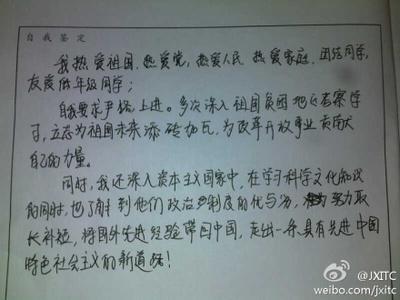 自我鉴定
我热爱祖国,热爱党,热爱人民 热爱家庭,团结同学,
友爱低年级同学;
自我要求严格上进。多次深入祖国贫困地区考察学
习,立志为祖国未来添砖加瓦,为改革开放事业贡献
自己的力量。
同时,我还深入资本主义国家中,在学习科学文化知识
的同时,也了解到他们政治制度的优与劣,努力取
长补短,将国外先进经验带回中国,走出一条具有先进中国
特色社会主义的新道路!
@JXITC
weibo.com/jxitc